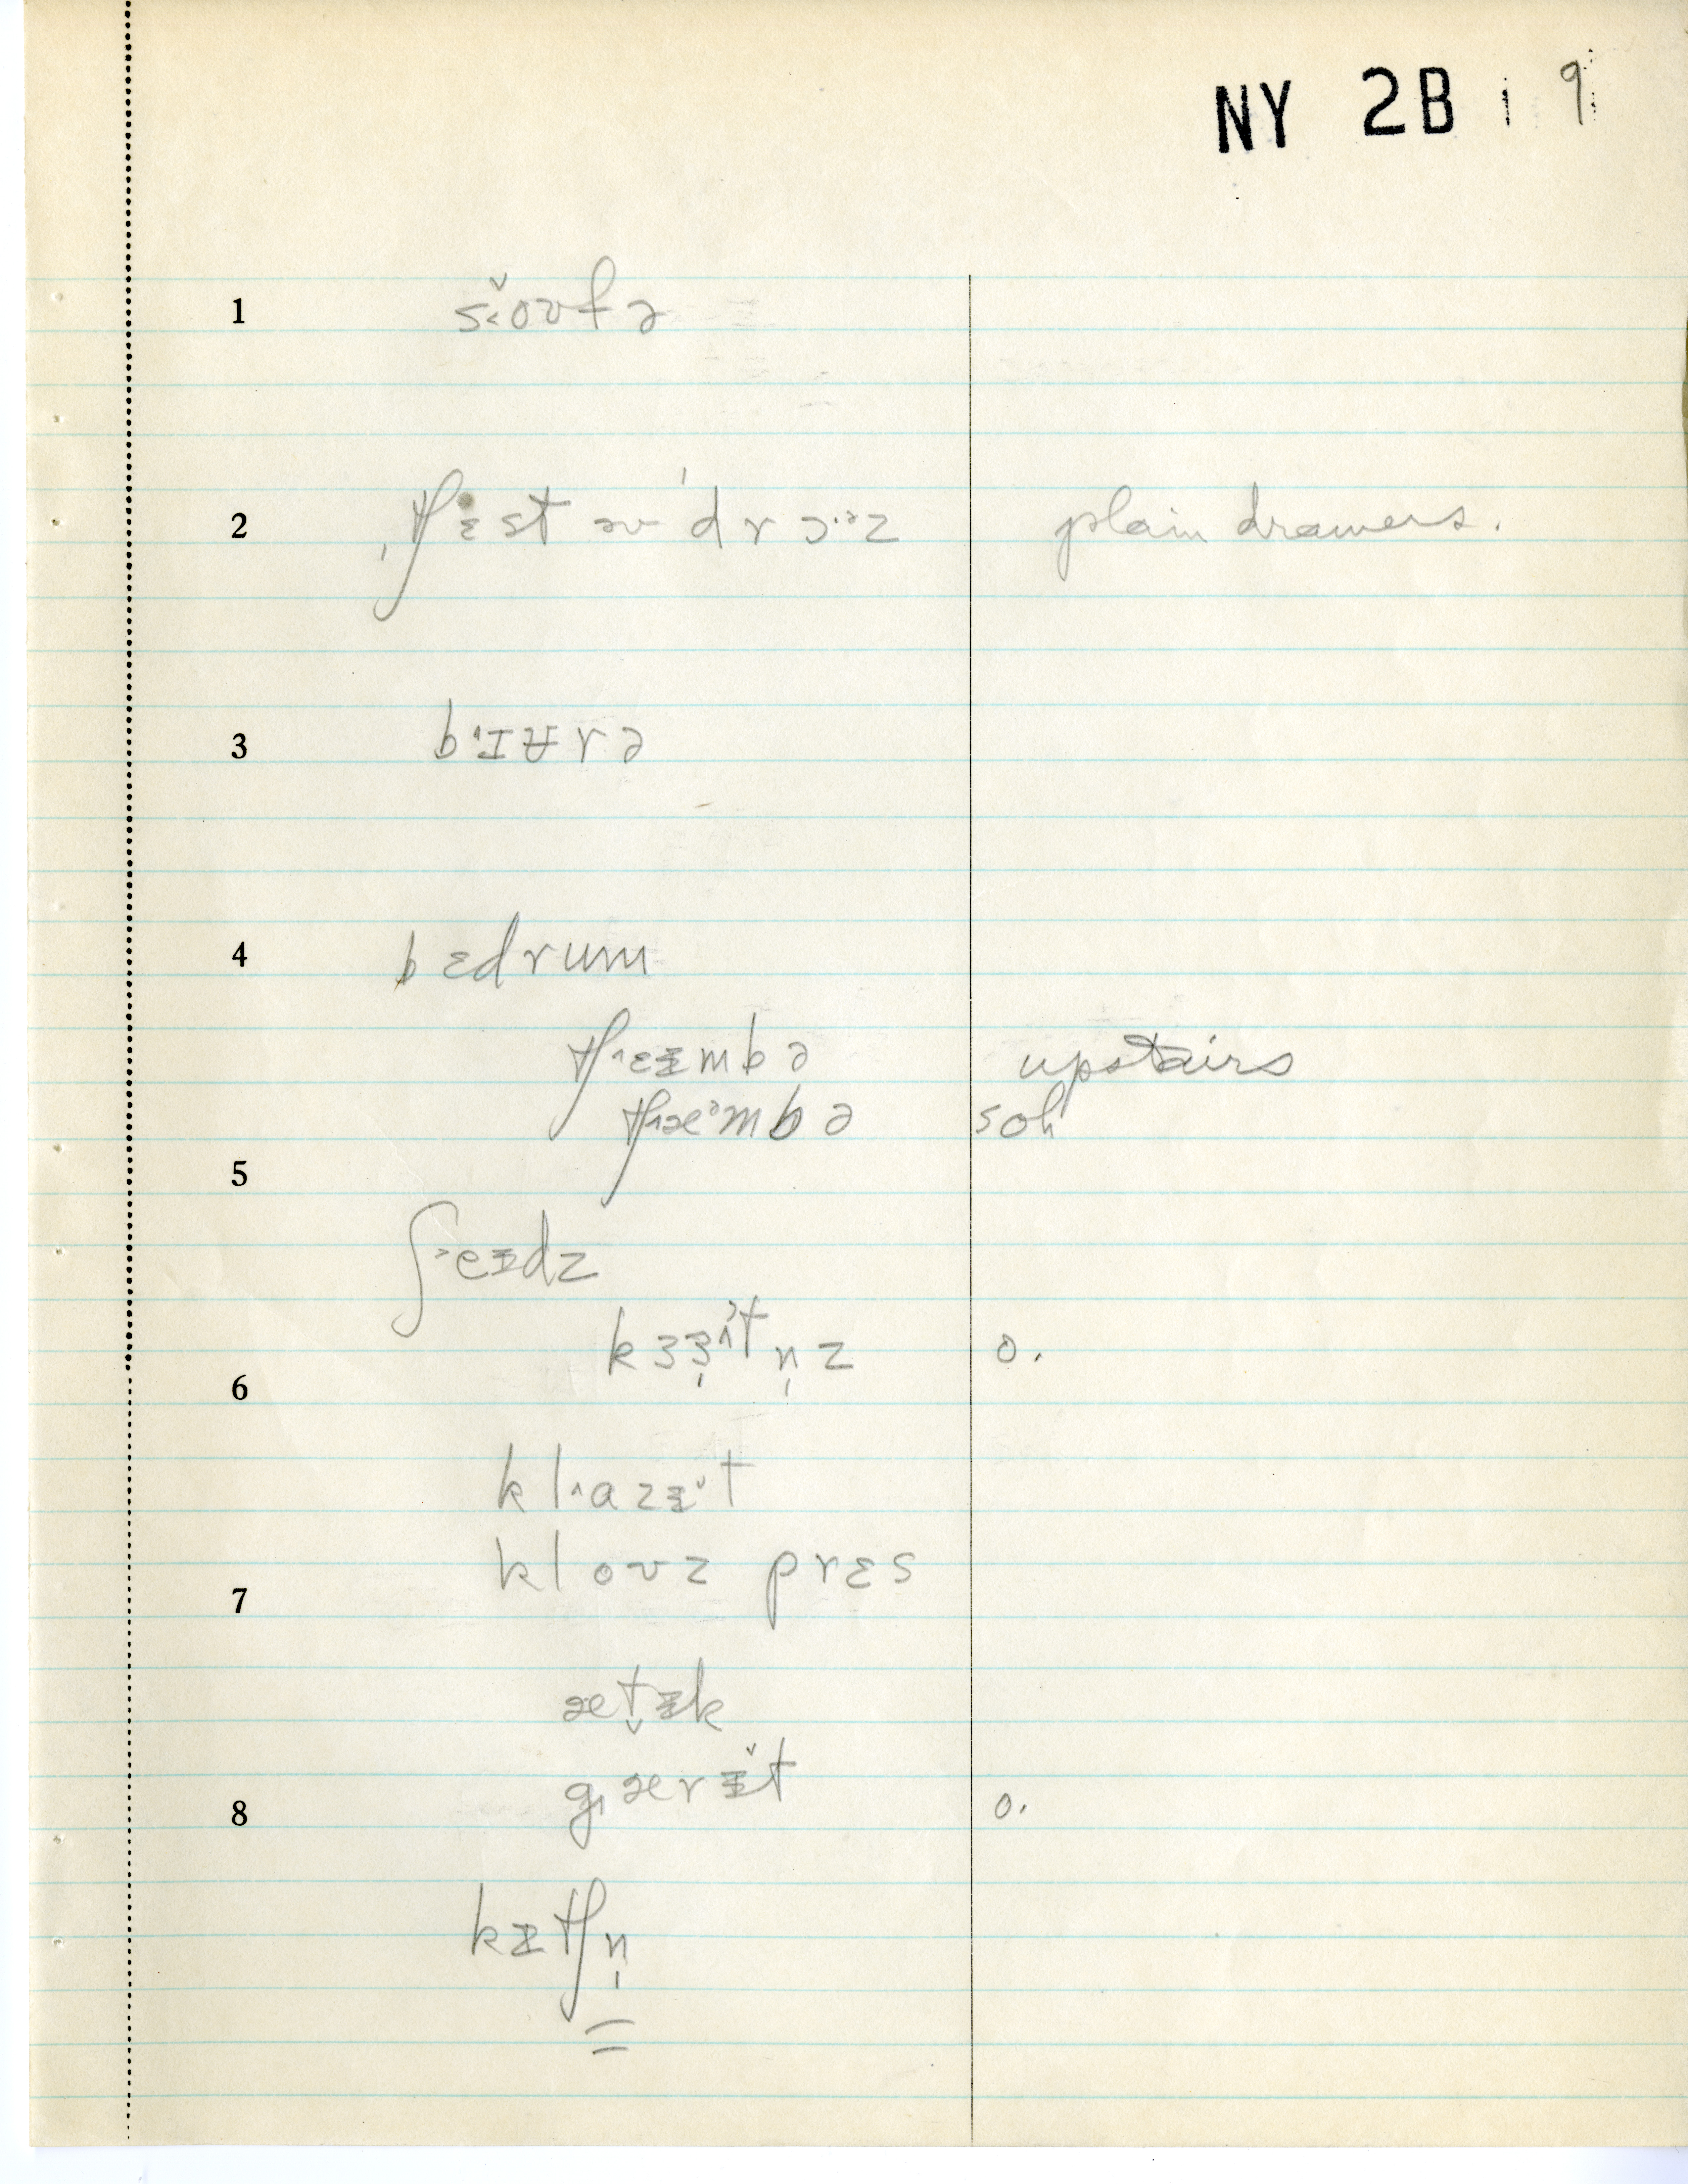 NY 2B 1 9
1 s˂oʊ̌fə
2 ˌtʃɛst əv ˈdrɔ·ᵊz plain drawers.
3 b˔ɪʉrə
4 bɛdrum
tʃ˄eɪmbə upstairs
tʃ˄æᵊmbə soh
5
ʃ˃eɪdz
kɜɜ̩ˀtn̩z o.
6
kl˄azɪ̵t
kloʊz prɛs
7
æt̬ɪ̵k
gærɪ̵̌t
8 o.
kɪ̵tʃn̩